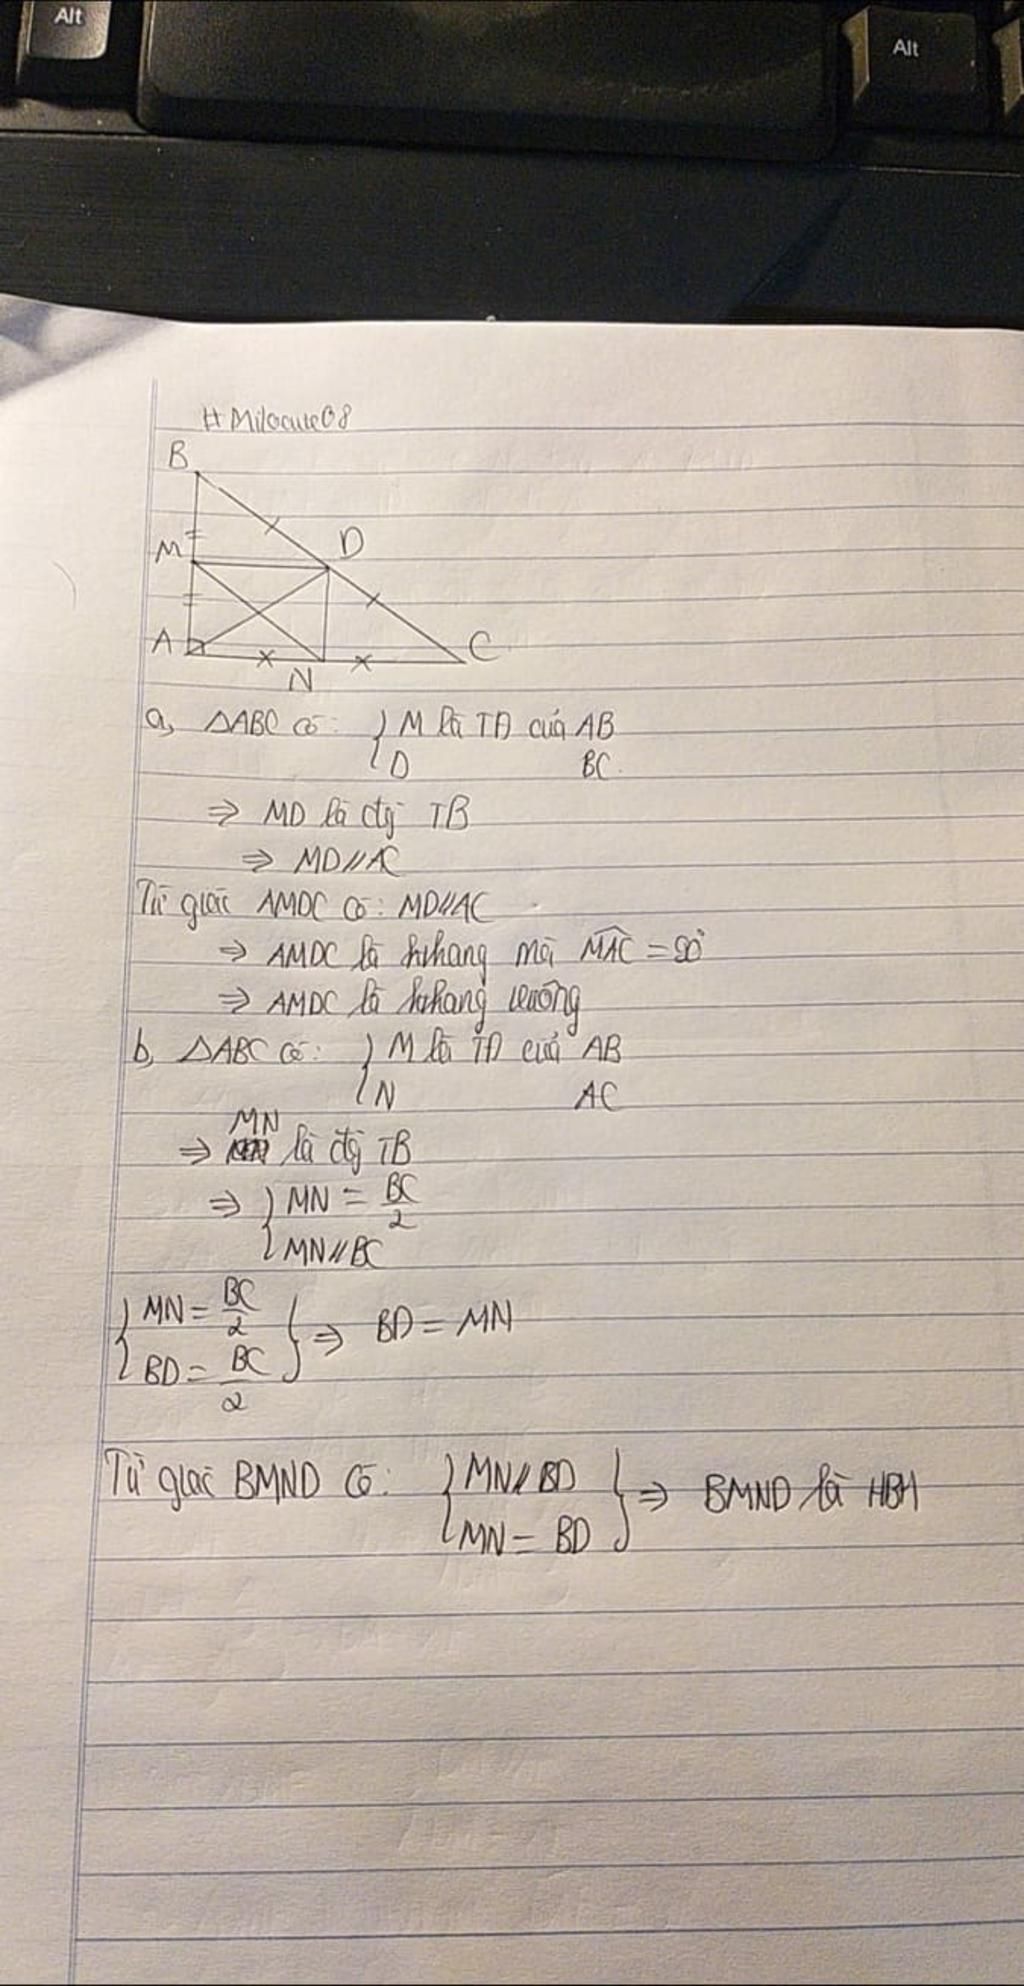 Alt
Alt
# Milocute08
B
M
D
A
C
N
a, △ABC có: { M là TĐ của AB
D BC.
⇒ MD là đg TB
⇒ MD // AC
Tứ giác AMDC có: MD // AC
⇒ AMDC là hthang mà MAC = 90°
⇒ AMDC là hthang vuông
b, △ABC có: { M là TĐ của AB
N AC
MN
⇒ là đg TB
⇒ { MN = BC/2
MN // BC
{ MN = BC/2
BD = BC/2 } ⇒ BD = MN
Tứ giác BMND có: { MN // BD
MN = BD } ⇒ BMND là HBH